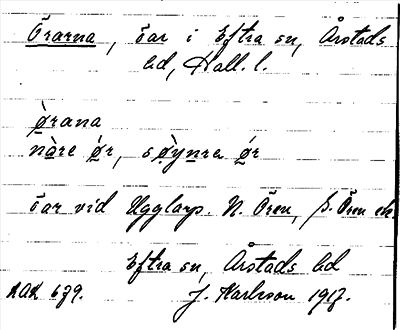 Örarna, öar i Eftra sn, Årstads
hd, Hall. l.
ø̀rana
nɑ̀re ǿr, sø̀ynre ǿr
öar vid Ugglarp. N. Ören, S. Ören ek.
Eftra sn, Årstads hd
AAK 679. J. Karlsson 1917.